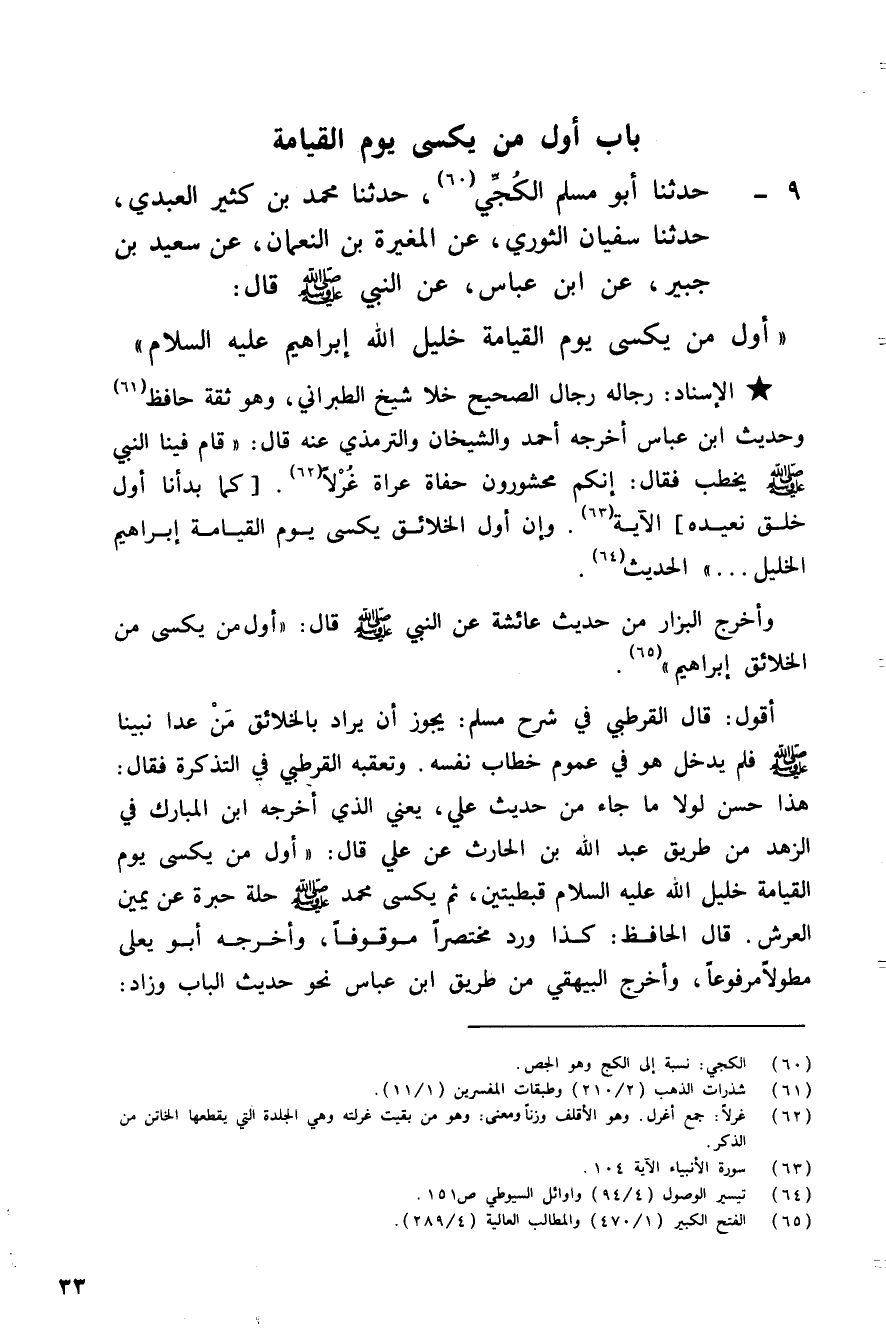 باب أول من يكسى يوم القيامة
٩ - حدثنا أبو مسلم الكُجِّي(٦٠)، حدثنا محمد بن كثير العبدي،
حدثنا سفيان الثوري، عن المغيرة بن النعمان، عن سعيد بن
جبير، عن ابن عباس، عن النبي ﷺ قال:
« أول من يكسى يوم القيامة خليل الله إبراهيم عليه السلام»
★ الإسناد: رجاله رجال الصحيح خلا شيخ الطبراني، وهو ثقة حافظ(٦١)
وحديث ابن عباس أخرجه أحمد والشيخان والترمذي عنه قال: « قام فينا النبي
ﷺ يخطب فقال: إنكم محشورون حفاة عراة غُرْلاً(٦٢). [ كما بدأنا أول
خلق نعيده] الآية(٦٣). وإن أول الخلائق يكسى يوم القيامة إبراهيم
الخليل...» الحديث(٦٤).
وأخرج البزار من حديث عائشة عن النبي ﷺ قال: «أول من يكسى من
الخلائق إبراهيم»(٦٥).
أقول: قال القرطبي في شرح مسلم: يجوز أن يراد بالخلائق مَنْ عدا نبينا
ﷺ فلم يدخل هو في عموم خطاب نفسه. وتعقبه القرطبي في التذكرة فقال:
هذا حسن لولا ما جاء من حديث علي، يعني الذي أخرجه ابن المبارك في
الزهد من طريق عبد الله بن الحارث عن علي قال: « أول من يكسى يوم
القيامة خليل الله عليه السلام قبطيتين، ثم يكسى محمد ﷺ حلة حبرة عن يمين
العرش. قال الحافظ: كذا ورد مختصراً موقوفاً، وأخرجه أبو يعلى
مطولاً مرفوعاً، وأخرج البيهقي من طريق ابن عباس نحو حديث الباب وزاد:
(٦٠) الكجي: نسبة إلى الكج وهو الجص.
(٦١) شذرات الذهب (٢١٠/٢) وطبقات المفسرين (١١/١).
(٦٢) غرلاً: جمع أغرل. وهو الأقلف وزناً ومعنى: وهو من بقيت غرلته وهي الجلدة التي يقطعها الخاتن من
الذكر.
(٦٣) سورة الأنبياء الآية ١٠٤.
(٦٤) تيسير الوصول (٩٤/٤) واوائل السيوطي ص١٥١.
(٦٥) الفتح الكبير (٤٧٠/١) والمطالب العالية (٢٨٩/٤).
٣٣